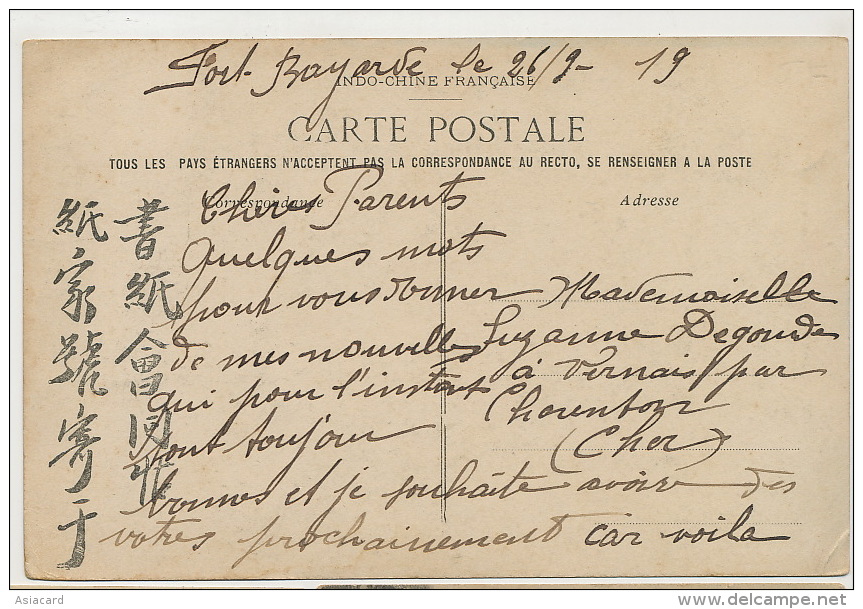 Fort-Bayarde le 26/9- 19
INDO-CHINE FRANÇAISE
CARTE POSTALE
TOUS LES PAYS ÉTRANGERS N'ACCEPTENT PAS LA CORRESPONDANCE AU RECTO, SE RENSEIGNER A LA POSTE
Correspondance
Adresse
Chères Parents
quelques mots
pour vous donner
de mes nouvelles
qui pour l'instant
sont toujour
bonnes et je souhaite avoire des
votres prochainement car voila
Mademoiselle
Suzanne Degoude
à Vernais par
Charenton
(Cher)
書紙會同
紙家號寄于
Asiacard
delcampe.net